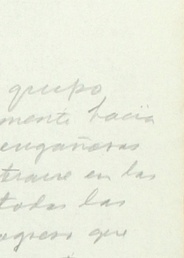 grupo
mente hacia
engañosas
traire en las
todas las
ogreso que